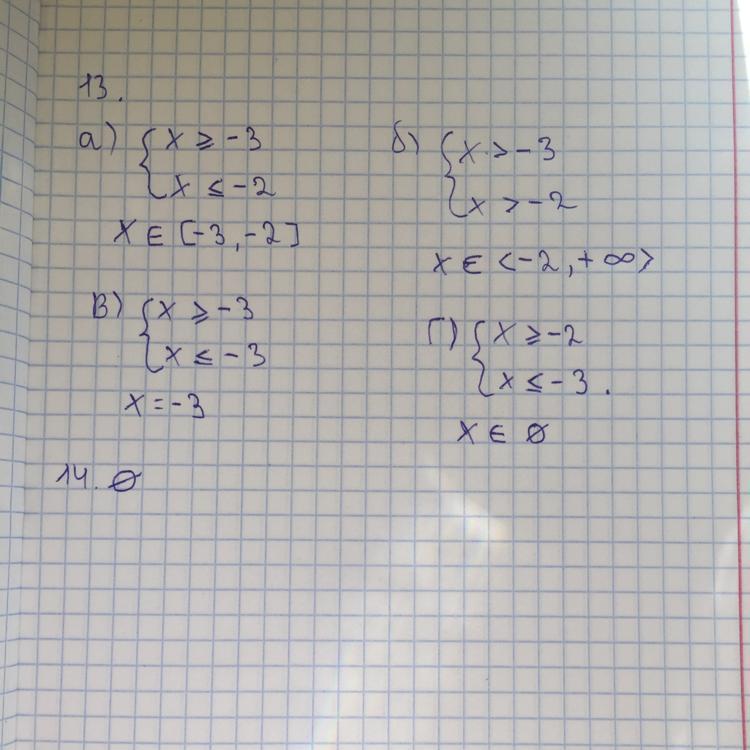 13.
а) { x ≥ -3
x ≤ -2
x ∈ [-3, -2]
б) { x > -3
x > -2
x ∈ <-2, +∞>
в) { x ≥ -3
x ≤ -3
x = -3
г) { x ≥ -2
x ≤ -3.
x ∈ ∅
14. ∅